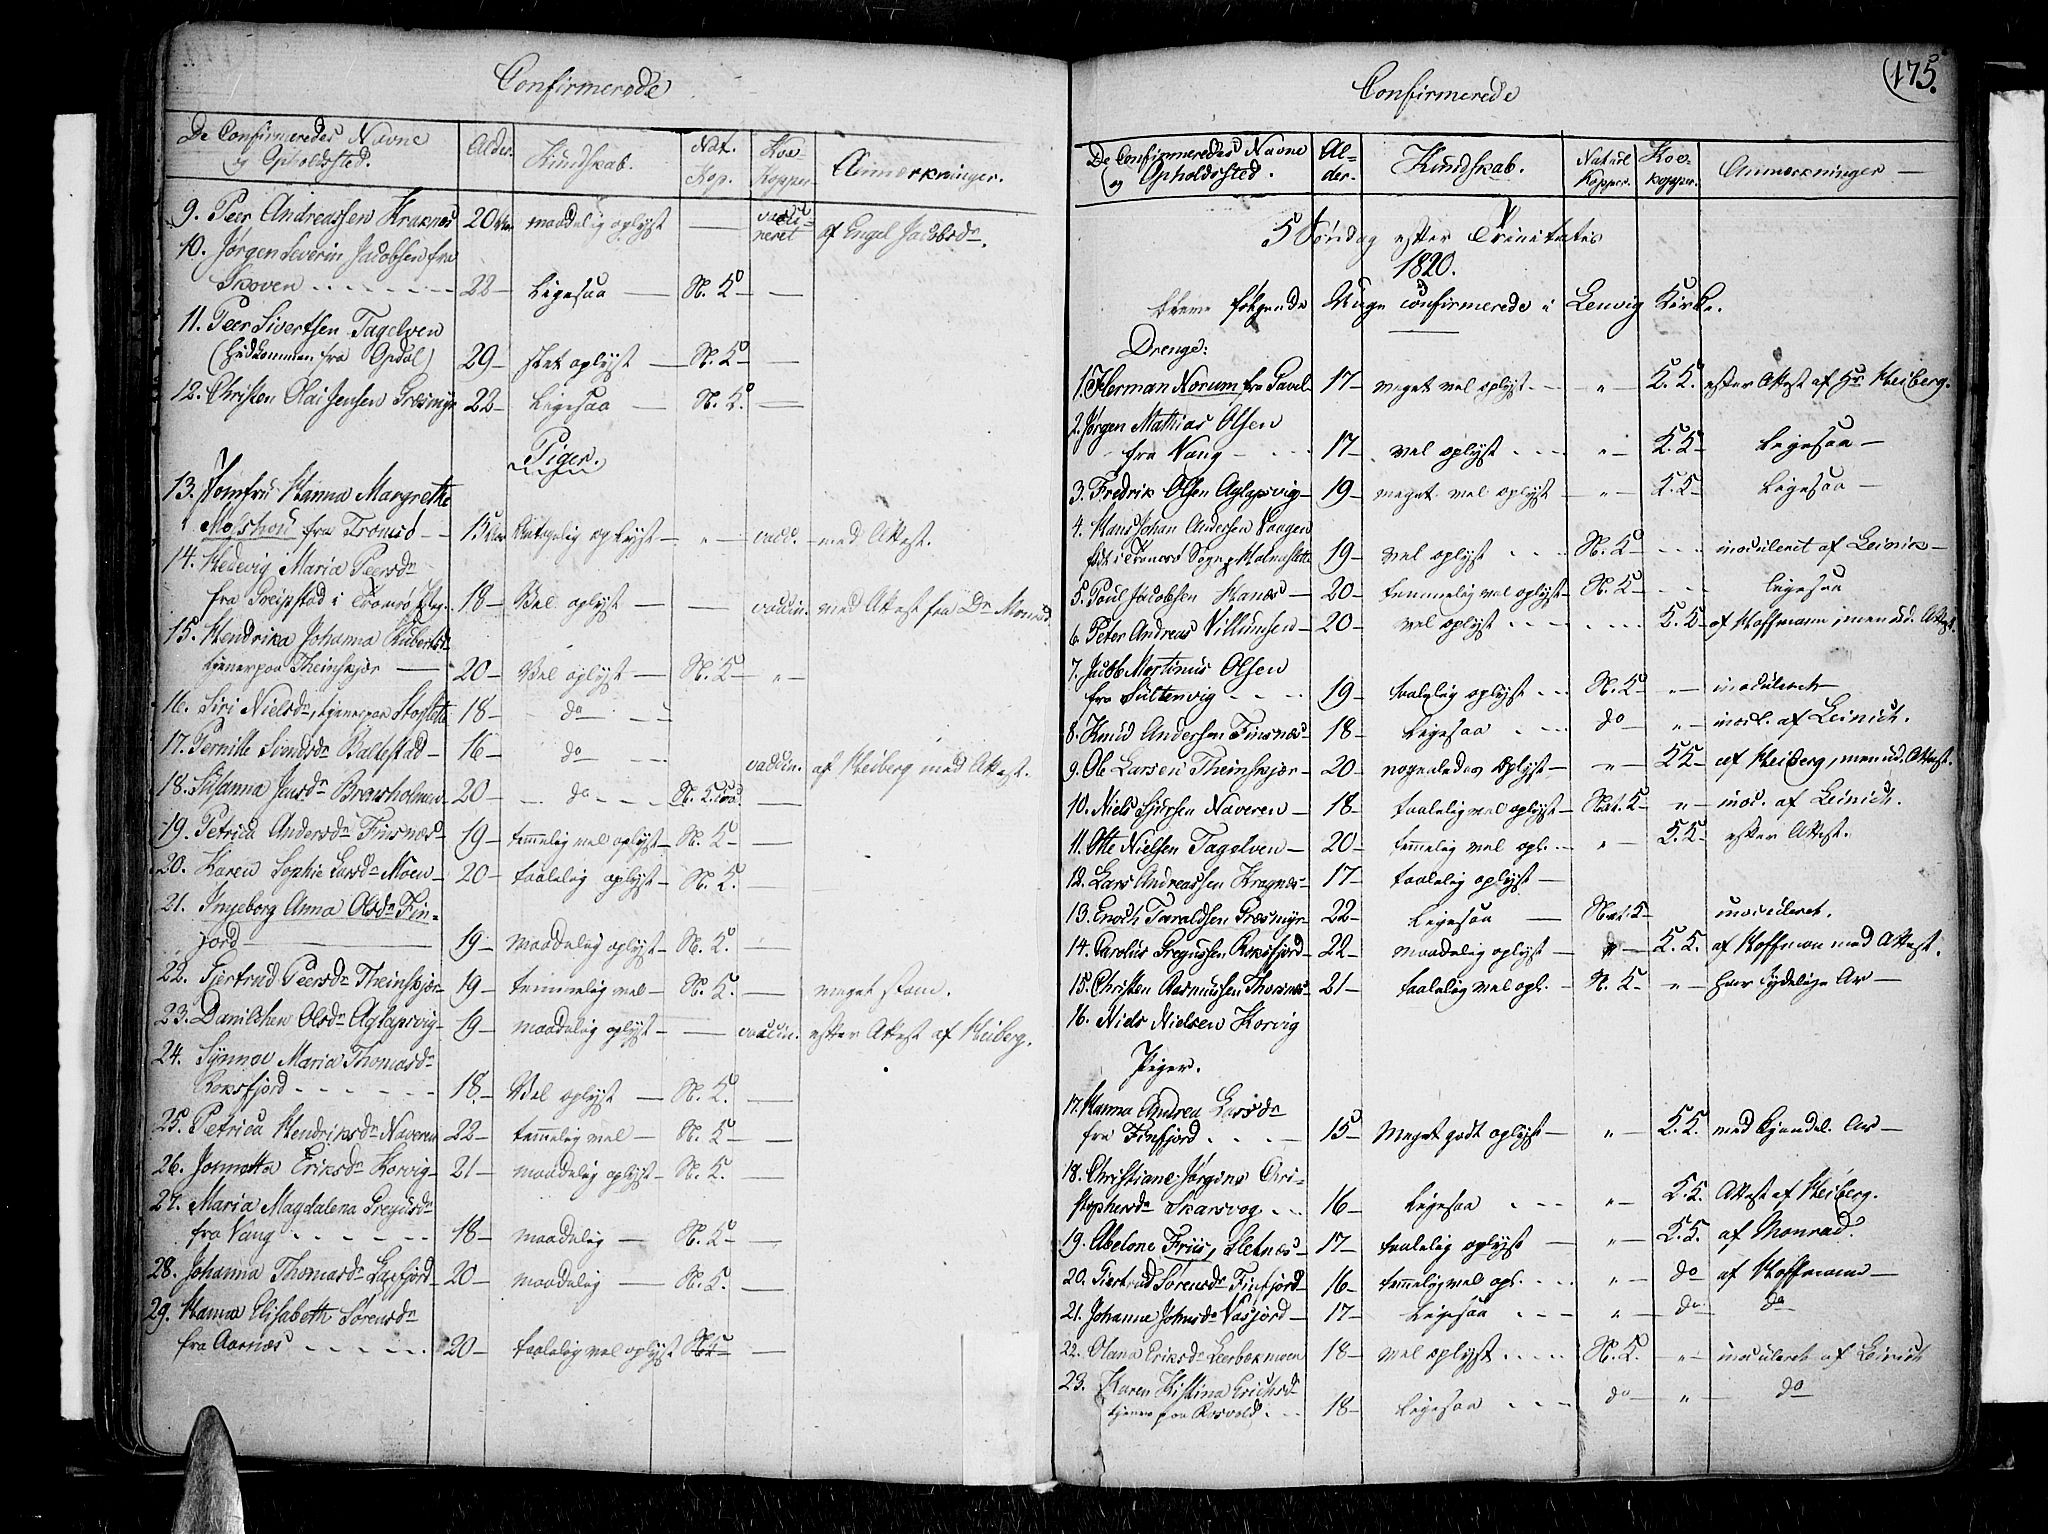 Confirmerede
De Confirmeredes Navne Alder. Kundskab. Nat. Koe- Anmærkninger.
og Opholdssted. Kop. Kopper.
9. Peer Andreassen Kraknæs 20 maadelig oplyst — vacci-
neret af Engel Jacobsdr.
10. Jørgen Severin Jacobsen fra
Skoven 22 — Ligesaa — N. K — —
11. Peer Sivertsen Tagelven
(hidkommen fra Opdal) 29 — slet oplyst — N. K — —
12. Christen Olai Jensen Græsmyr 22 — Ligesaa — N. K. —
Piger.
13. Jomfru Hanna Margrethe
fra Tromsø — 15 oplyst — „ — vacc. — med Attest.
14. Hedevig Maria Peersdr
fra Greipstad i Tromsø 18 — Vel oplyst — — vaccin. med Attest fra Dr Monrad.
15. Hendrika Johanna
tjener paa Theinskjær — 20 — Vel oplyst — N. K — „ —
16. Siri Nielsdr, tjener paa 18 — do —
17. Pernille Simdsdr Ballestad — 16 — do — vaccin. af Heiberg med Attest.
18. Susanna Jansdr 20 — do — N. K. —
19. Petrica Andersdr Finsnæs — 19 — temmelig vel oplyst — N. K — —
20. Karen Sophie Larsdr Moen — 20 — taalelig oplyst — N. K. —
21. Ingeborg Anna Olsdr Fin-
fjord — 19 — Maadelig oplyst — N. K. —
22. Giertrud Peersdr Theinskjær — 19 — temmelig vel — N. K. — meget stam.
23. Danilchen Olsdr Aglapsvig — 19 — maadelig oplyst — — vaccin. efter Attest af Heiberg.
24. Synnøe Maria Thomasdr
Roksfjord 18. — Vel oplyst — N. K. —
25. Petrica Hendriksdr Naveren 22 — temmelig vel — N. K — —
26. Jonnetta Eriksdr Korvig — 21 — maadelig oplyst — N. K. —
27. Maria Magdalena Gregusdr
fra Vang 18 — maadelig — N. K — —
28. Johanna Thomasdr Laxfjord 20 — maadelig — N. K. —
29. Hanna Elisabeth Sørensdr
fra Aarnæs 20 — taalelig vel oplyst —
Confirmerede 175.
De Confirmeredes Navne Al- Kundskab. Naturl Koe- Anmærkninger —
og Opholdssted. der. Kopper. kopper.
5 Søndag efter Trinitatis
1820.
bleve følgende Unge confirmerede i Lenvig Kirke.
Drenge:
1. Herman Norum fra 17 — meget vel oplyst „ K. K. efter Attest af Hr Heiberg.
2. Jørgen Mathias Olsen
fra Vang 17 — vel oplyst „ — K. K — Ligesaa —
3. Fredrik Olsen Aglapsvig — 19 — meget vel oplyst — „ — K. K — Ligesaa —
4. Hans Johan Andersen Vaagen
født i Tromsø Sogn 19 — vel oplyst N. K — inoculeret af Leinik —
5. Poul Jacobsen Hanæs — 20 — temmelig vel oplyst — N. K — Ligesaa
6. Peter Andreas Villumsen — 20 — vel oplyst K. K — af Hoffmann, men ud. Attest.
7. Jacob Mortinus Olsen
fra Sultenvig 19 — taalelig oplyst N. K — „ — inoculeret —
8. Knud Andersen Finsnæs — 18 — Ligesaa do „ — inoc. af Leinich.
9. Ole Larsen Theinskjær — 20 — nogenledes Oplyst — „ — K K — af Heiberg, men ud. Attest.
10. Niels Naveren — 18 — taalelig vel oplyst — Nat. K — „ — inoc. af Leinich.
11. Otte Nielsen Tagelven — 20 — temmelig vel opl. „ — K. K — efter Attest.
12. Lars Andreassen Kragnæs — 17 — taalelig oplyst —
13. Enoch Taraldsen Græsmyr — 22 — Ligesaa — Nat. K — inoculeret.
14. Carolus Gregussen Roksfjord — 22 — maadelig oplyst — K. K. af Hoffman med Attest.
15. Christen Rasmussen Thorsnæs — 21 — taalelig vel opl. — N. K — „ — har tydelige Ar —
16. Niels Nielsen Korvig
Piger.
17. Hanna Andrea Larsdr
fra Finfjord 15 — Meget godt oplyst — „ — K. K. med kjendel. Ar —
18. Christiane Jørgine Chri-
stophersdr Skarsvog 16 — Ligesaa „ — K. K. Attest af Heiberg.
19. Abelone Friis, Sletnæs — 17 — taalelig oplyst — „ — K. K. af Monrad.
20. Giertrud Sørensdr Finfjord — 16 — temmelig vel opl. „ — do af Hoffmann —
21. Johanna Johnsdr Vasjord — 17 — Ligesaa „ do do
22. Olana Eriksdr Leerbekmoen 18 — vel oplyst N. K. „ — inoculeret af Leinich
23. Karen Kistina Erichsd
tjener paa Rosvold 18 — Ligesaa do „ — do